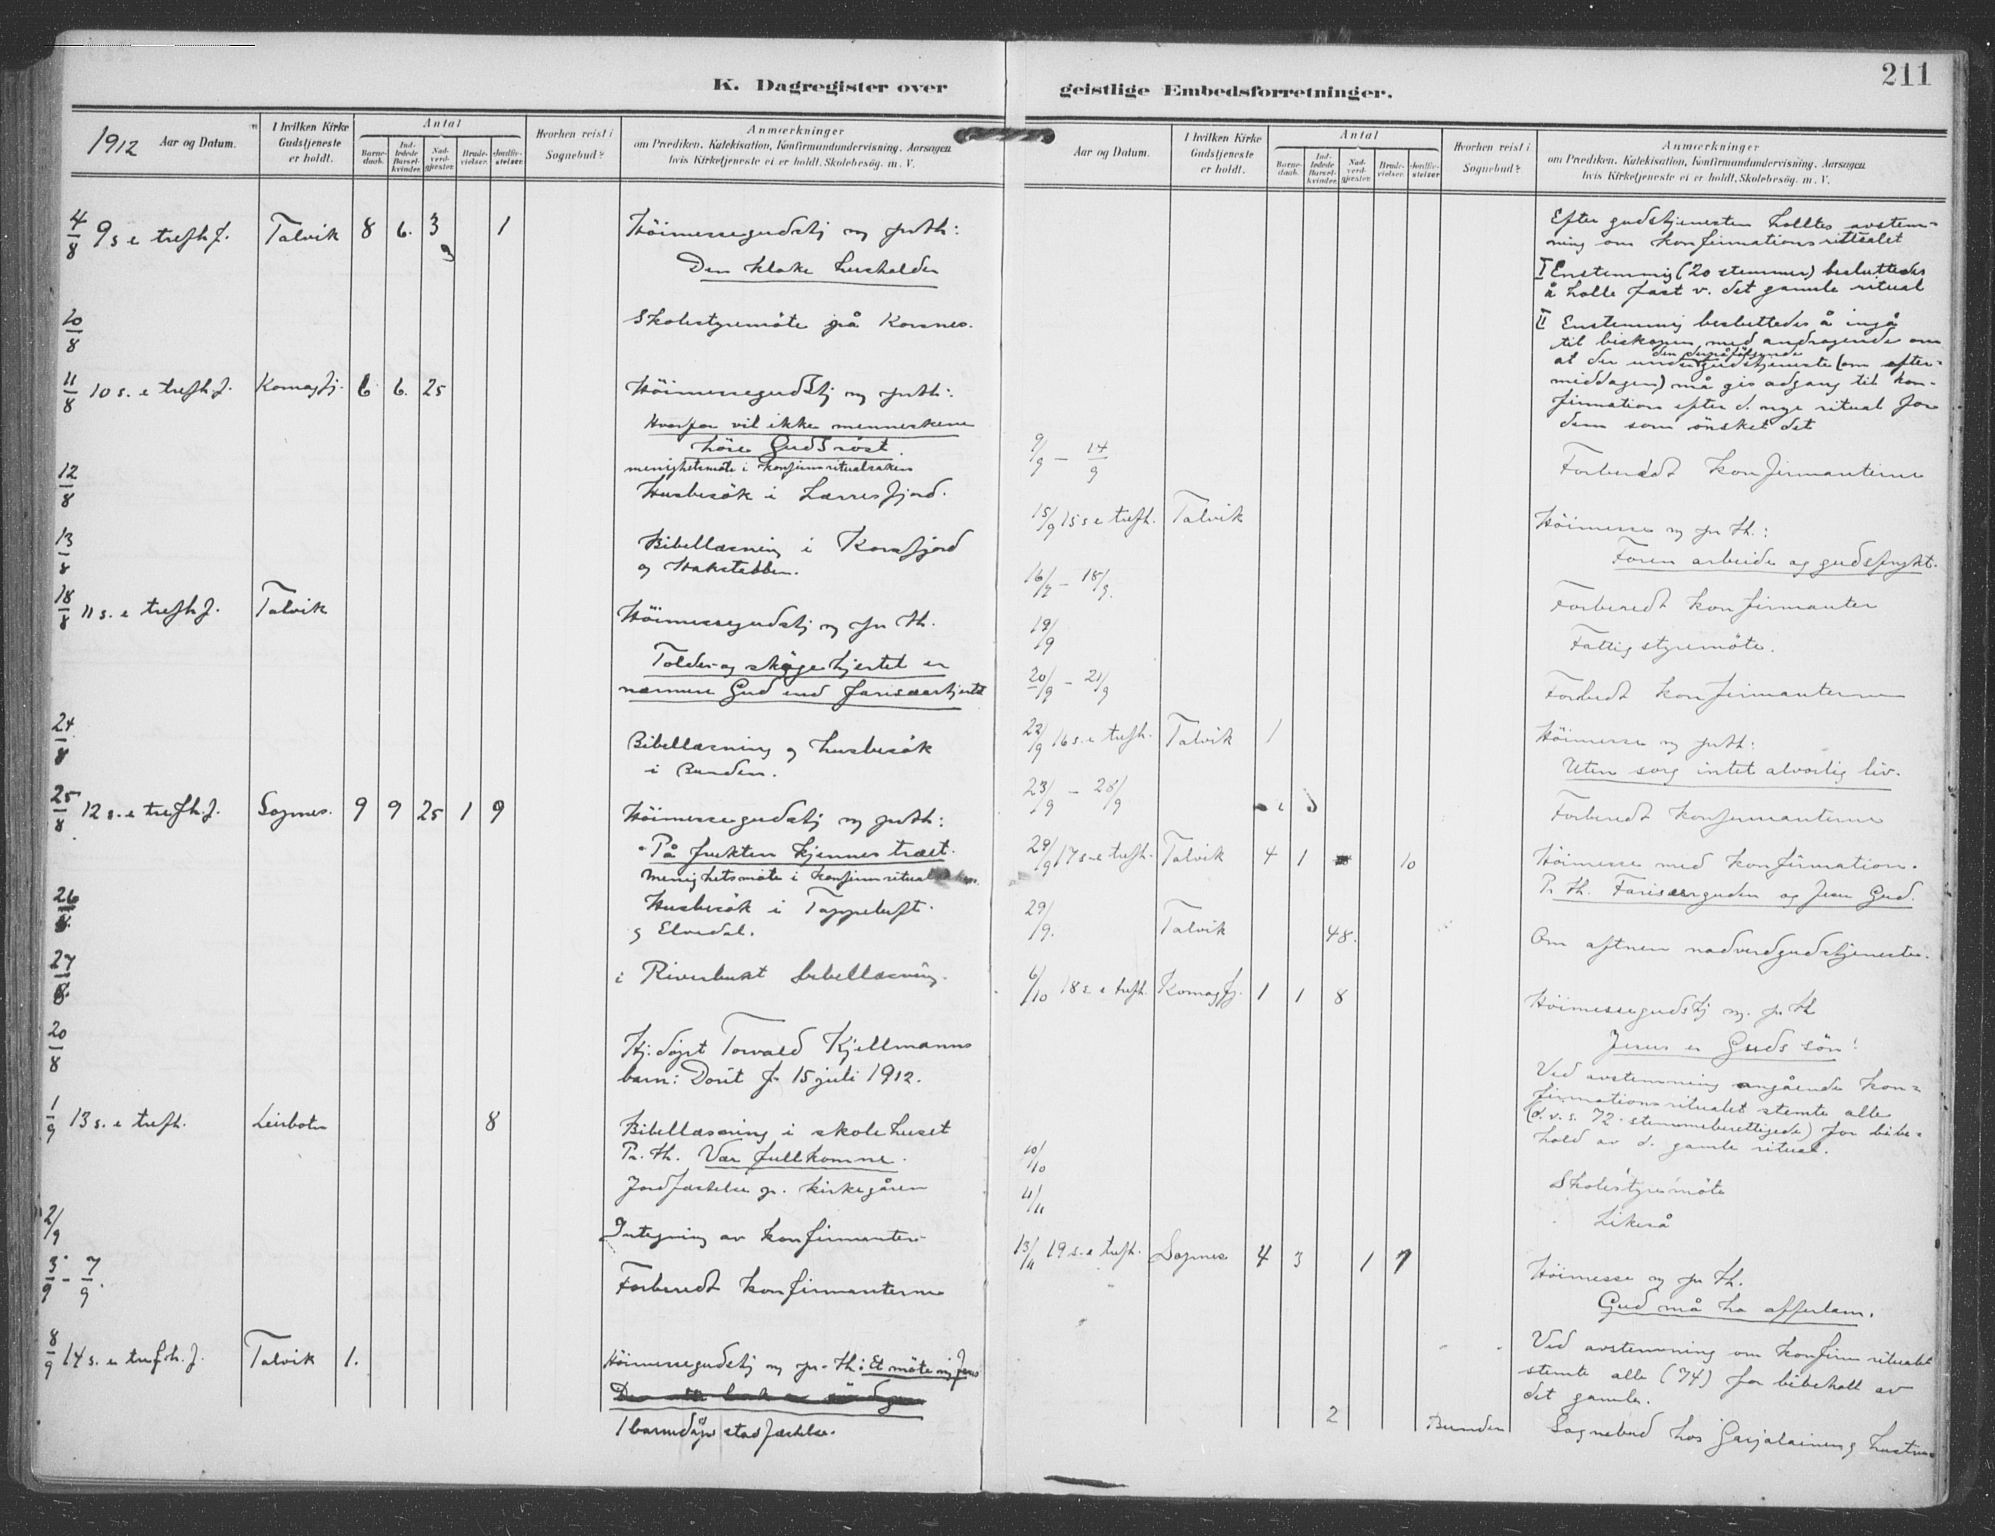 K. Dagregister over
1912 Aar og Datum.
I hvilken Kirke Gudstjeneste er holdt.
Antal
Barnedaab.
Indledede Barselkvinder.
Nadverdgjester.
Brudevielser.
Jordfæstelser.
Hvorhen reist i Sognebud?
Anmærkninger
om Prædiken, Katekisation, Konfirmandundervisning, Aarsagen
hvis Kirketjeneste ei er holdt, Skolebesøg. m. V.
4/8 9 s. e. trefh.f. Talvik 8 6. 3 1 Höimessegudstj og pr th:
Den kloke husholder
10/8 Skolestyremöte på Korsnes.
11/8 10 s. e trefh f. Komagfj. 6 6. 25 Höimessegudstj og pr th:
Hvorfor vil ikke menneskene
höre Guds röst.
menighetsmöte i konfirmritualsaken
12/8 Husbesök i Lærresfjord.
13/8 Bibellæsning i Korsfjord
og Hakstabben.
18/8 11 s. e trefh f. Talvik Höimessegudstj og pr th.
Tolder og skjøgehjertet er
nærmere Gud end farisæerhjertet
24/8 Bibellæsning og husbesök
i Bunden.
25/8 12 s. e trefh.f. Sopnes. 9 9 25 1 9 Höimessegudstj og pr th:
På frukten kjennes træet.
Menighetsmöte i konfirmritual
26/8 Husbesök i Tappeluft.
og Elvedal.
27/8 i Riverbukt bibellæsning.
20/8 Hj. döpt Torvald Kjellmanns
barn: Dorit f. 15 juli 1912.
1/9 13 s. e trefh. Leirbotn 8 Bibellæsning i skolehuset
Pr. th. Vær fullkomne.
Jordfæstelse p. kirkegåren
2/9 Integning av konfirmanter
3/9 - 7/9. Forberedt konfirmanterne
8/9 14 s. e trefh.f. Talvik 1. Höimessegudstj og pr. th: Et möte m. Jesus
1 barnedåps stadfæstelse.
geistlige Embedsforretninger.
211
Aar og Datum.
I hvilken Kirke Gudstjeneste er holdt.
Antal
Barnedaab.
Indledede Barselkvinder.
Nadverdgjester.
Brudevielser.
Jordfæstelser
Hvorhen reist i Sognebud?
Anmærkninger
om Prædiken, Katekisation, Konfirmandundervisning, Aarsagen
hvis Kirketjeneste ei er holdt, Skolebesøg. m. V.
Efter gudstjenesten holltes avstem-
ning om konfirmationsritualet
I Enstemmig (20 stemmer) besluttedes
å holle fast v. det gamle ritual
II Enstemmig besluttedes å ingå
til biskopen med andragende om
at der under den påfölgende gudstjeneste (om efter-
middagen) må gis adgang til kon-
firmation efter d. nye ritual for
dem som önsket det
9/9 - 14/9 Forberedt konfirmanterne
15/9 15 s e trefh. Talvik Höimesse og pr th:
Foren arbeide og gudsfrykt.
16/9 - 18/9. Forberedt konfirmanter
19/9 Fattigstyremöte.
20/9 - 21/9 Forberedt konfirmanterne
22/9 16 s. e trefh. Talvik 1 Höimesse og pr th:
Uten sorg intet alvorlig liv.
23/9 - 28/9 Forberedt konfirmanterne
29/9 17 s. e trefh. Talvik 4 1 10 Höimesse med konfirmation.
Pr. th. Farisæerguden og Jesu Gud.
29/9. Talvik 48. Om aftnen nadverdgudstjeneste.
6/10 18 s. e trefh. Komagfj. 1 1 8 Höimessegudstj og. pr th
Jesus er Guds sön!
Ved avstemning angående kon-
firmationsritualet stemte alle
(d.v.s. 72 stemmeberettigede) for bibe-
hold av d. gamle ritual.
10/10 Skolestyremöte
11/11 Likeså
13/11 19 s. e trefh. Sopnes 4 3 1 7 Höimesse og pr th.
Gud må ha offerlam.
Ved avstemning om konfirm ritualet
stemte alle (74) for bibeholl av
det gamle.
2 Bunden Sognebud hos Garjalainen og hustru